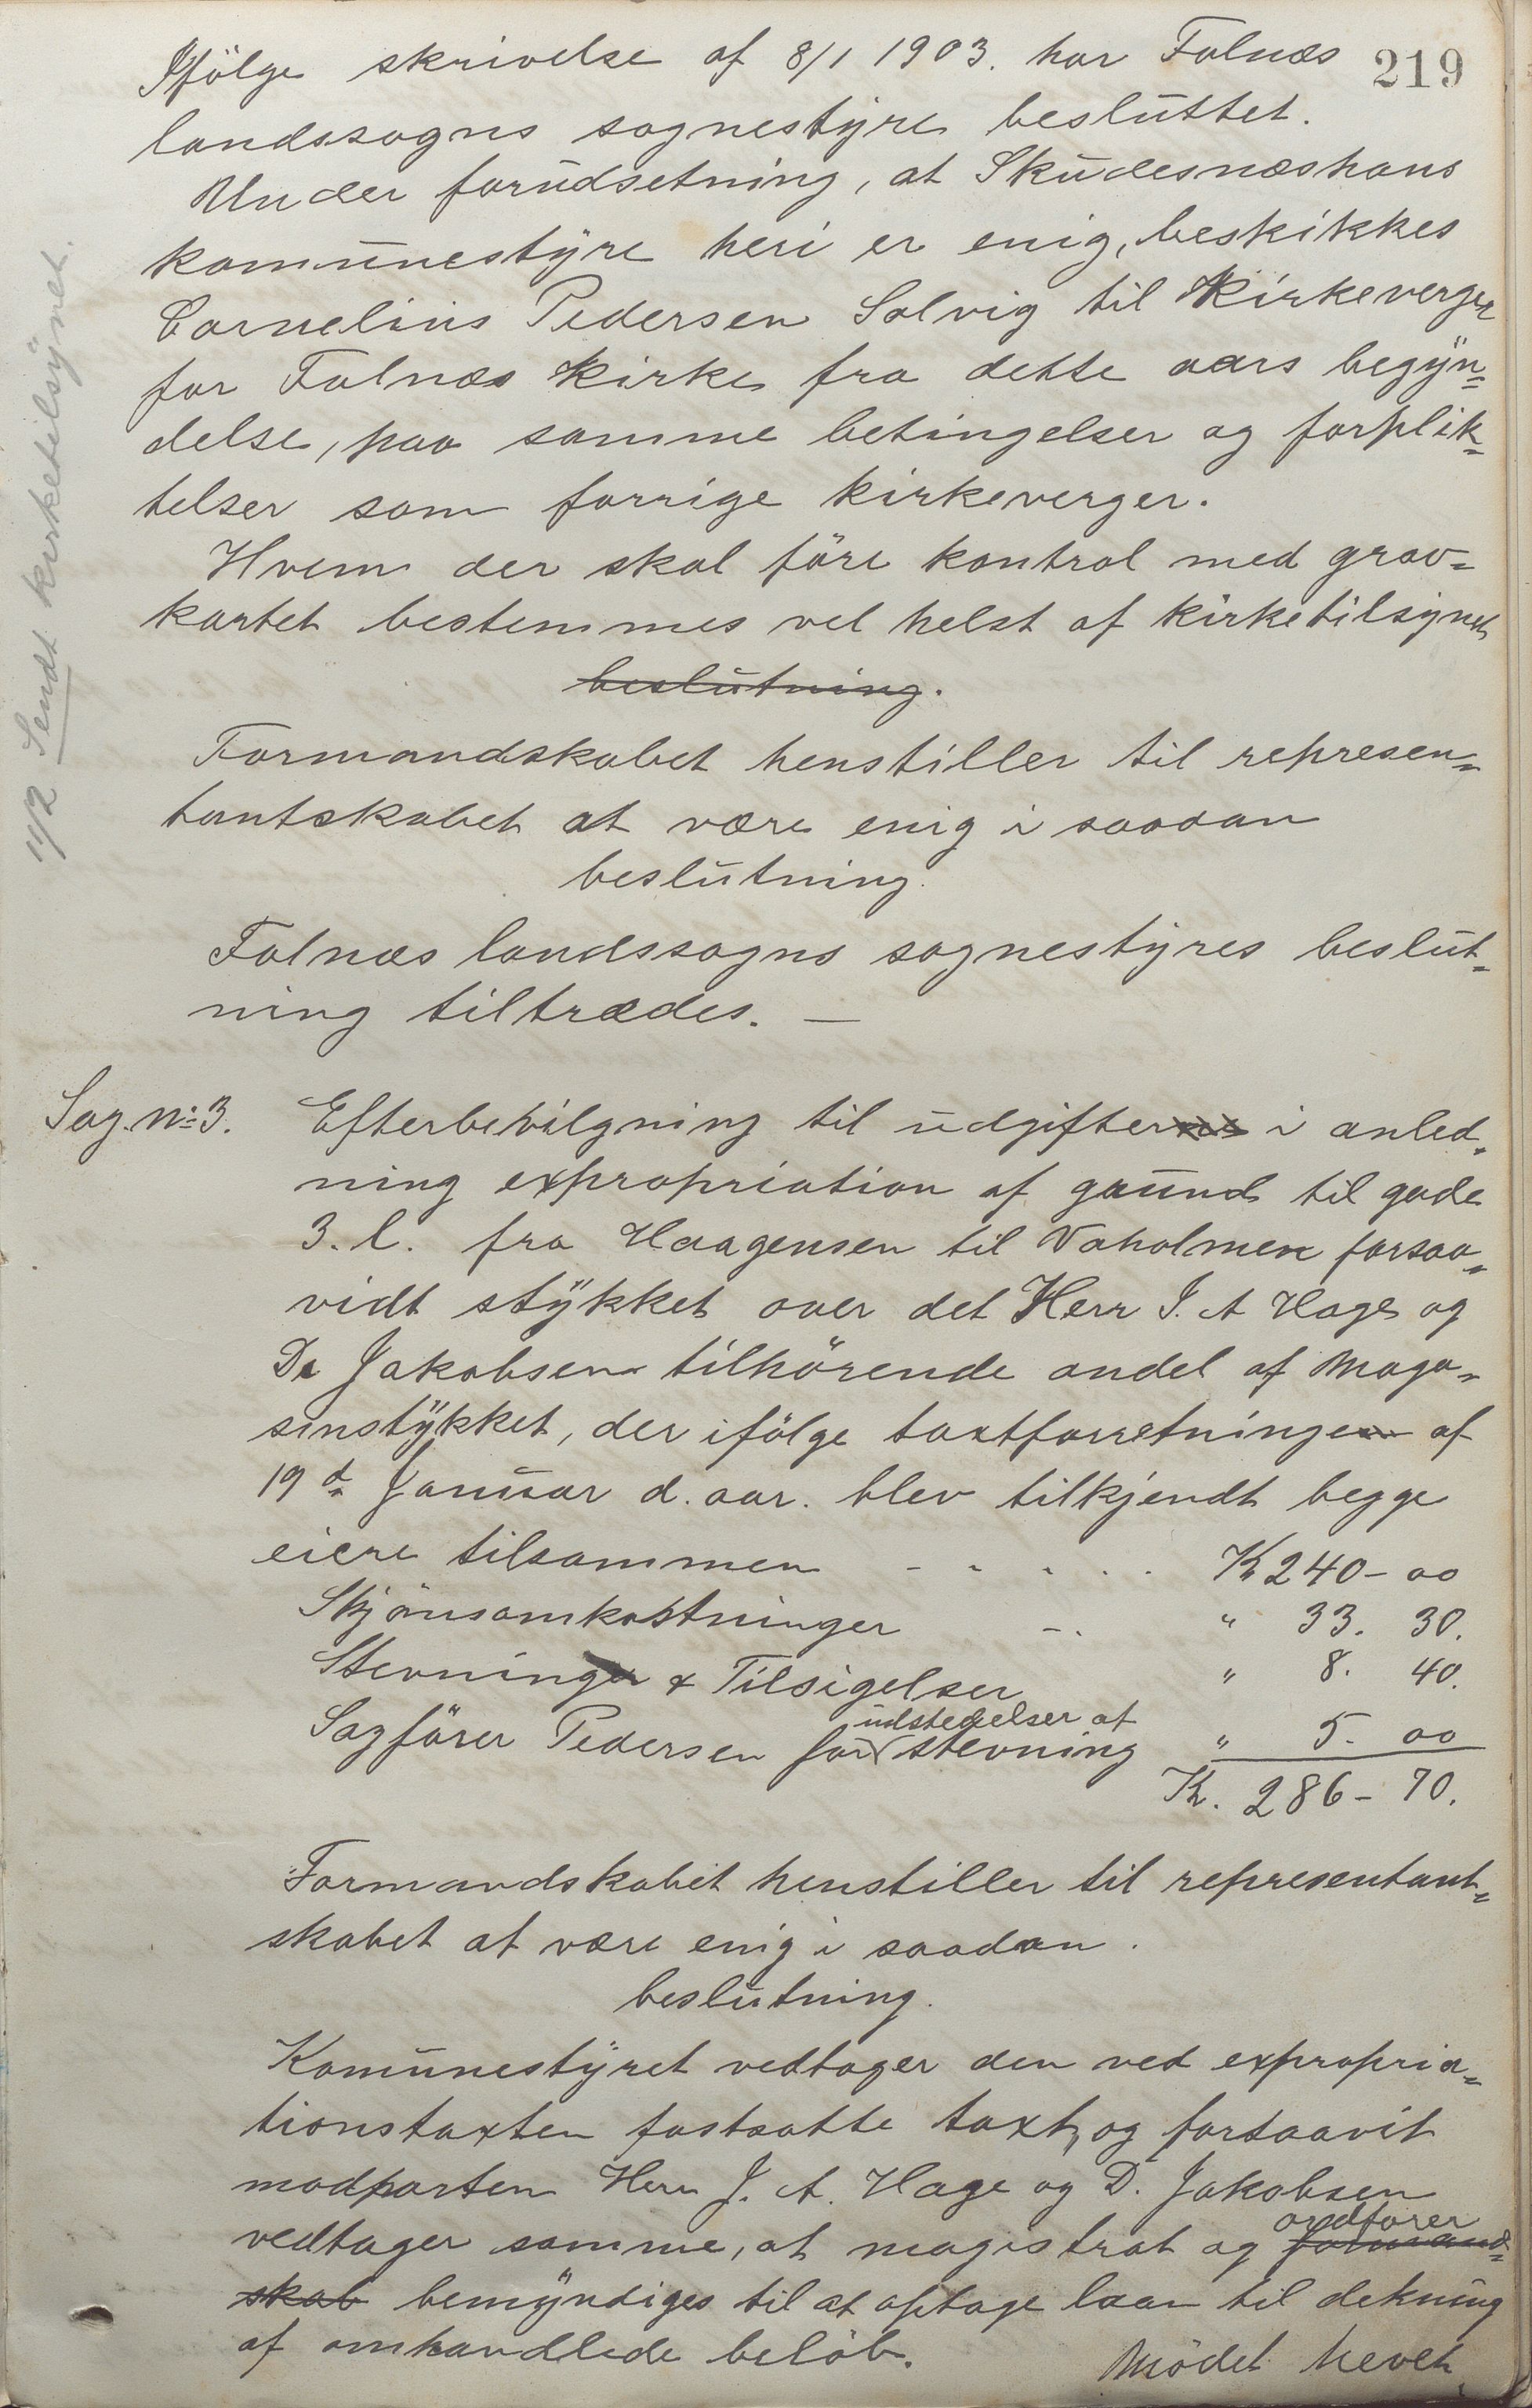 219
Ifölge skrivelse af 8/1 1903. har Falnæs
landssogns sognestyre besluttet.
Under forudsetning, at Skudesnæshavns
komunestyre heri er enig, beskikkes
Cornelius Pedersen Solvig til Kirkeverger
for Falnæs Kirke fra dette aars begyn-
delse, paa samme betingelser og forplik-
telser som forrige kirkeverger.
Hvem der skal före kontrol med grav-
kartet bestemmes vel helst af kirketilsynet
beslutning.
Formandskabet henstiller til represen-
tantskabet at være enig i saadan
beslutning.
Falnæs landssogns sognestyres beslut-
ning tiltrædes. —
11/2 Sendt kirketilsynet.
Sag. No 3. Efterbevilgning til udgifter i anled-
ning expropriation af graund til gade
3. l. fra Haagensen til Vaholmen forsaa-
vidt stykket over det Herr J. A Hage og
D. Jakobsen tilhörende andel af Maga-
sinstykket, der ifölge taxtforretninge af
19de Januar d. aar. blev tilkjendt begge
eiere tilsammen - - - - - Kr 240 - 00
Skjönsomkostninger -- " 33. 30.
Stevning & Tilsigelser " 8. 40.
udstedelser af
Sagförer Pedersen for stevning " 5. 00
Kr. 286 - 70.
Formandskabet henstiller til representant-
skabet at være enig i saadan.
beslutning.
Komunestyret vedtager den ved expropria-
tionstaxten fastsatte taxt, og forsaavit
modparten Herr J. A. Hage og D. Jakobsen
ordförer
vedtager samme, at magistrat og formand-
skab bemyndiges til at optage laan til dekning
af omhandlede belöb.
Mödet hevet